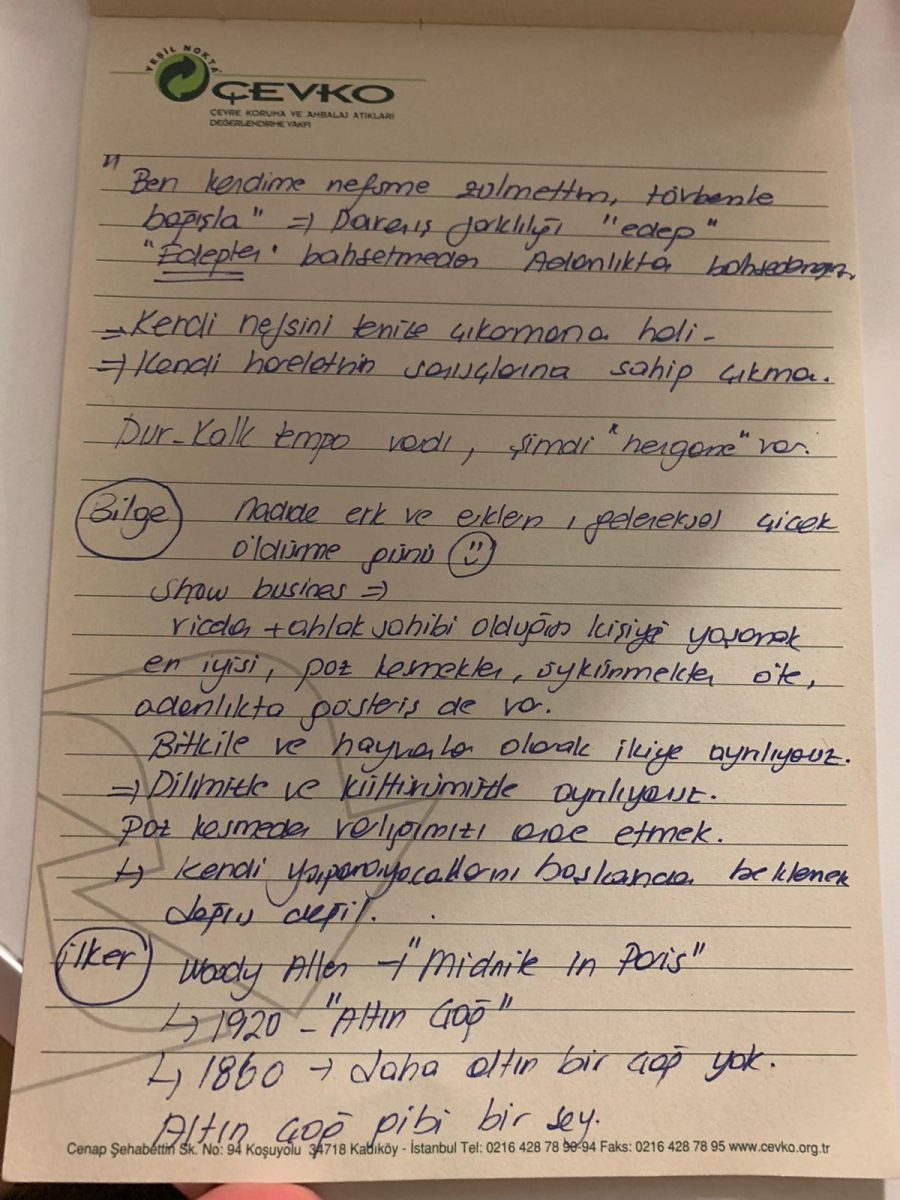 YEŞİL NOKTA
ÇEVKO
ÇEVRE KORUMA VE AMBALAJ ATIKLARI
DEĞERLENDİRME VAKFI
"Ben kendime nefsime zülmettim, tövbemle
bağışla" ⇒ Davranış farklılığı "edep"
"Edepten" bahsetmeden Adanlıkta
⇒ Kendi nefsini temize çıkarmama hali -
⇒ Kendi hareketinin sonuçlarına sahip çıkma.
Dur-Kalk tempo vardı, şimdi "hergane" var.
Bilge Nadide erk ve, geleneksel çiçek
öldürme günü
Show busines ⇒
vicdan + ahlak sahibi olduğun kişiyi yaşamak
en iyisi, poz kesmekten, öykünmekten öte,
adanlıkta gösteriş de var.
Bitkiler ve hayvanlar olarak ikiye ayrılıyoruz.
⇒ Dilimizle ve kültürümüzle ayrılıyoruz.
Poz kesmeden varlığımızı etmek.
↳ Kendi başkasından beklemek
doğru değil.
ilker Woody Allen → "Midnik in Paris"
↳ 1920 - "Altın Çağ"
↳ 1860 → daha altın bir çağ yok.
Altın çağ gibi bir şey.
Cenap Şehabettin Sk. No: 94 Koşuyolu 34718 Kadıköy - İstanbul Tel: 0216 428 78 90-94 Faks: 0216 428 78 95 www.cevko.org.tr